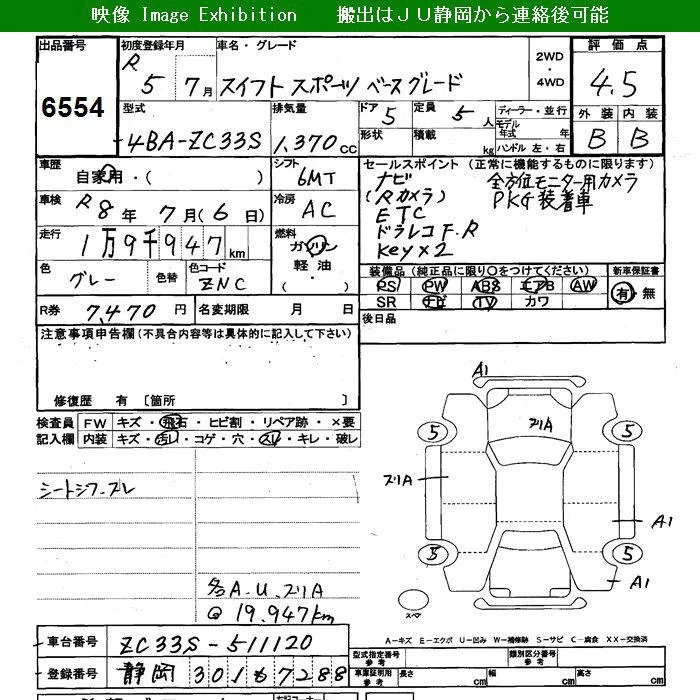 映像 Image Exhibition 搬出はＪＵ静岡から連絡後可能
出品番号 6554
初度登録年月 R 5 7月
車名・グレード スイフト スポーツ ベースグレード
2WD・4WD
評価点 4.5
型式 4BA-ZC33S
排気量 1,370cc
ドア 5 定員 5人
形状 積載 kg
ディーラー・並行
モデル年式 年
ハンドル 左・右
外装 内装
B B
車歴 自家用・( )
シフト 6MT
車検 R 8年 7月(6日)
冷房 AC
走行 1万9千947km
燃料 ガソリン 軽油・( )
色 グレー 色替
色コード ZNC
R券 7,470円
名変期限 月 日
セールスポイント (正常に機能するものに限ります)
ナビ 全方位モニター用カメラ
(Rカメラ) PKG装着車
ETC
ドラレコ F.R
Key×2
装備品 (純正品に限り○をつけてください)
新車保証書 有・無
RS PW ABS エアB AW
SR ナビ TV カワ
後日品
注意事項申告欄(不具合内容等は具体的に記入して下さい)
修復歴 有 〔箇所 〕
検査員記入欄
FW キズ・飛石・ヒビ割・リペア跡・×要
内装 キズ・汚レ・コゲ・穴・スレ・キレ・破レ
各A.U.スリA
@ 19.947km
A1
スリA
5 5
スリA
A1
5 5
A1
スペア
A－キズ E－エクボ U－凹み W－補修跡 S－サビ C－腐食 XX－交換済
車台番号 ZC33S-511120
登録番号 静岡 301 も 7288
型式指定番号 参考
類別区分番号 参考
車庫証明用 参考 長さ cm 幅 cm 高さ cm